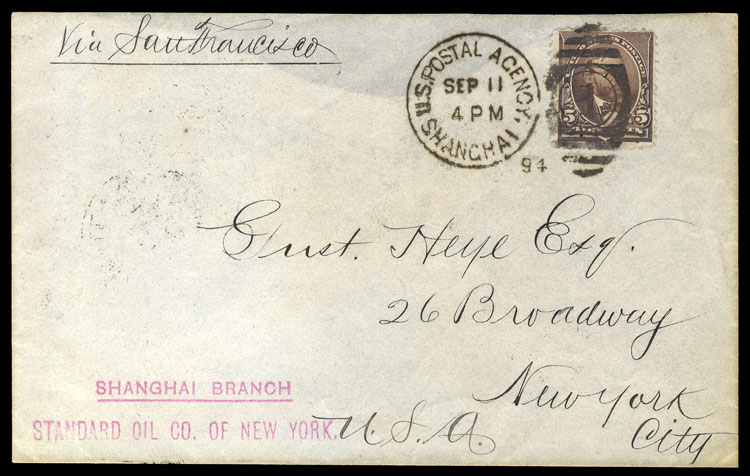 Via San Francisco
U.S. POSTAL AGENCY.
SEP 11
4 PM
SHANGHAI
94
1
5 5
Gust. Heye Esq.
26 Broadway
New York
City
U.S.A.
SHANGHAI BRANCH
STANDARD OIL CO. OF NEW YORK.